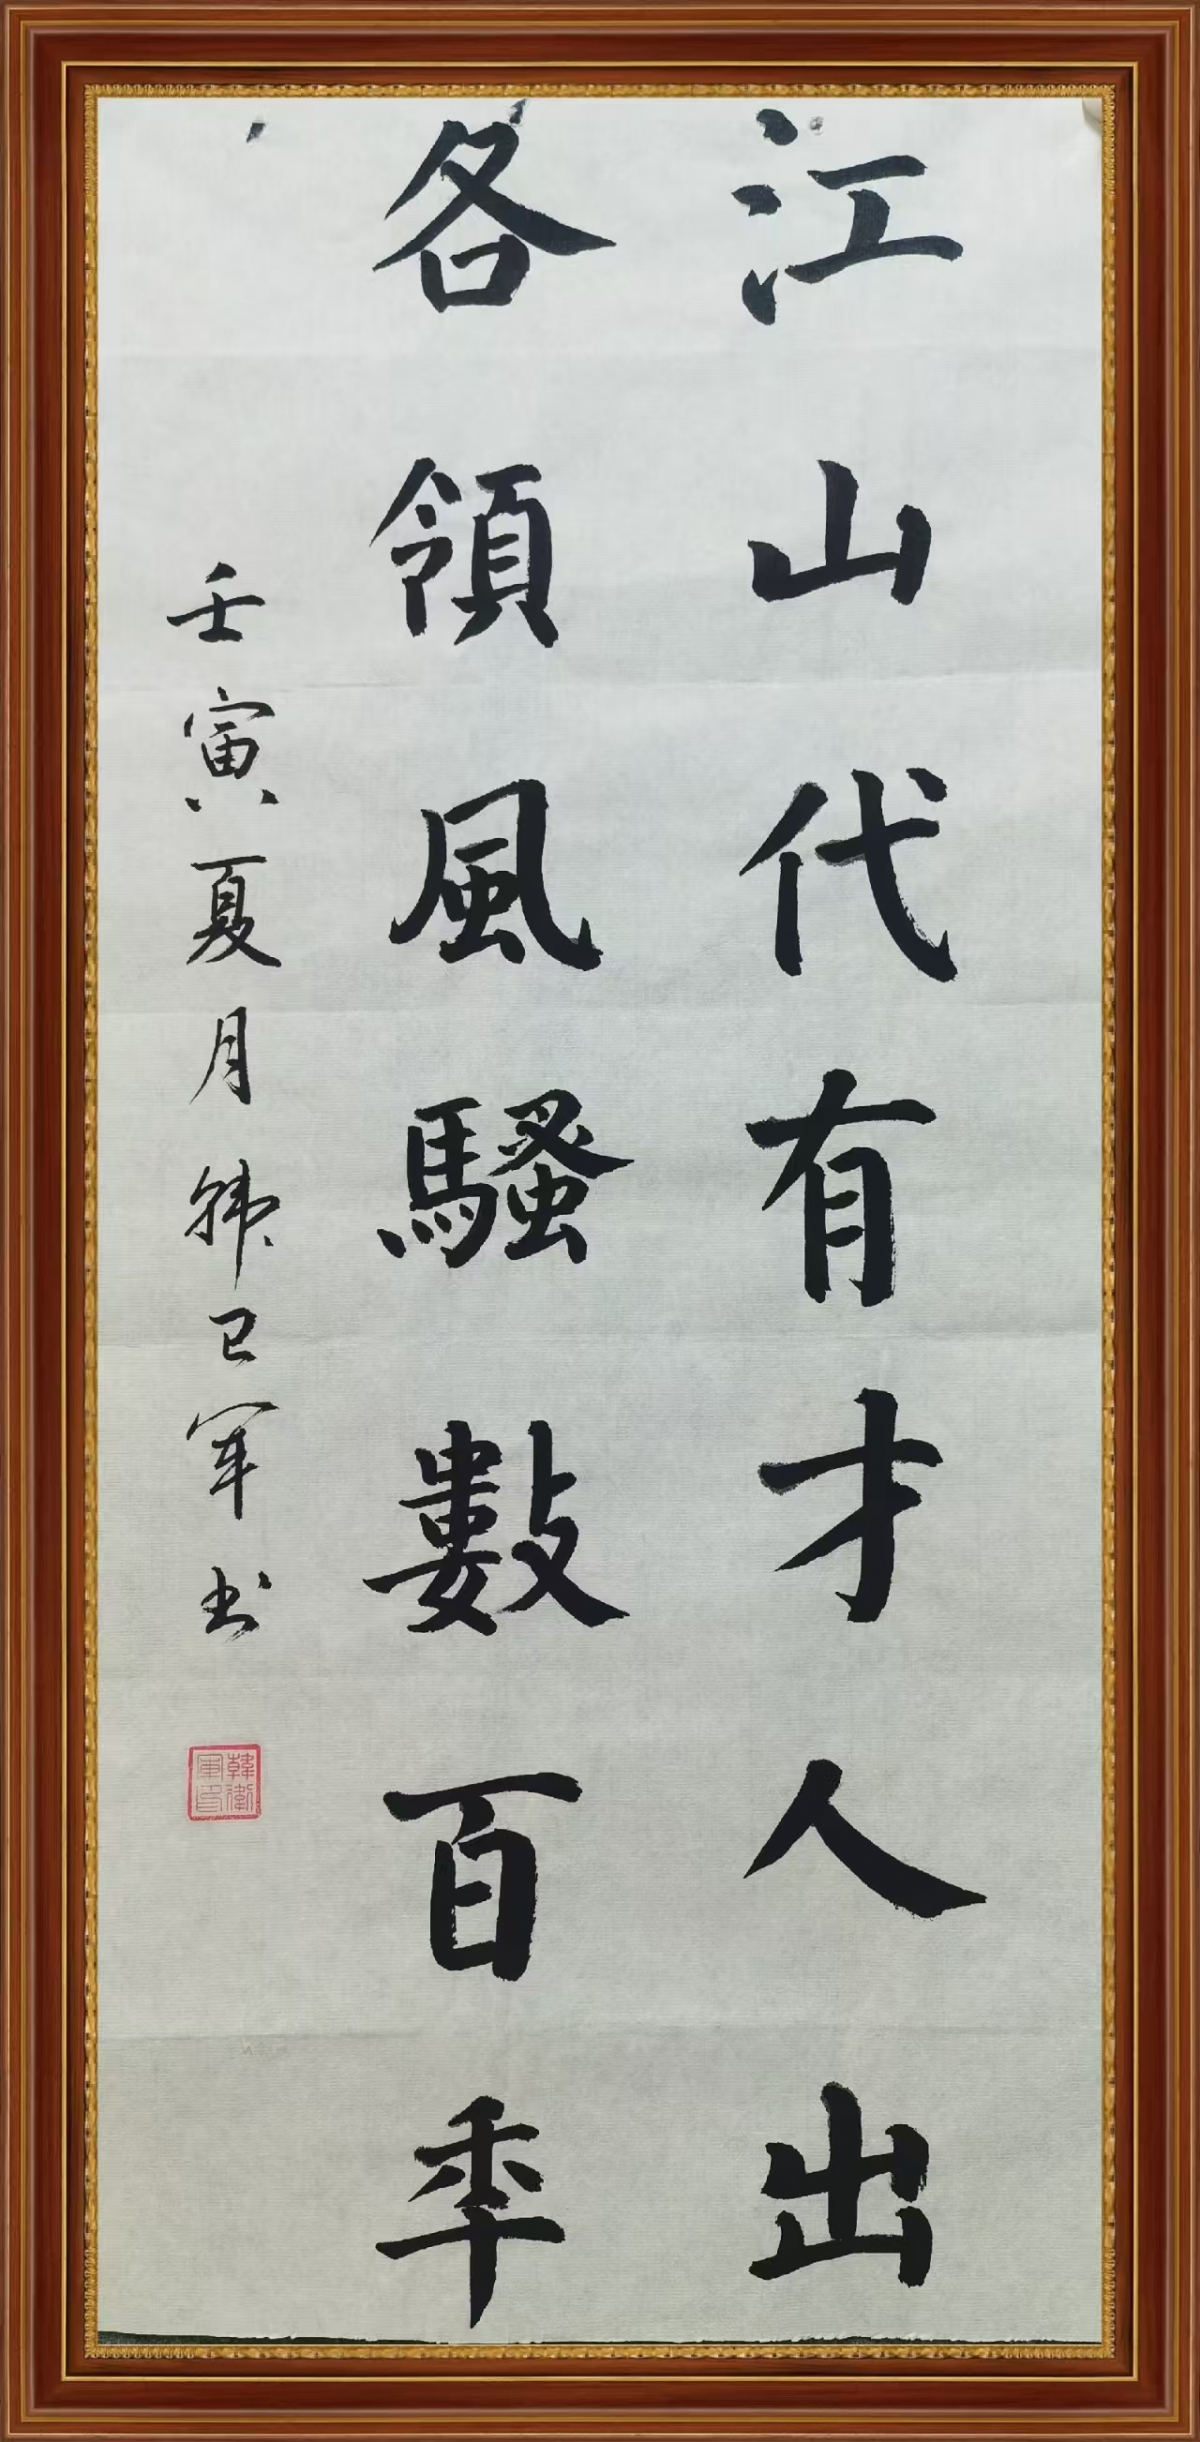 江山代有才人出
各領風騷數百年
壬寅夏月韩卫军书
韓衛軍印